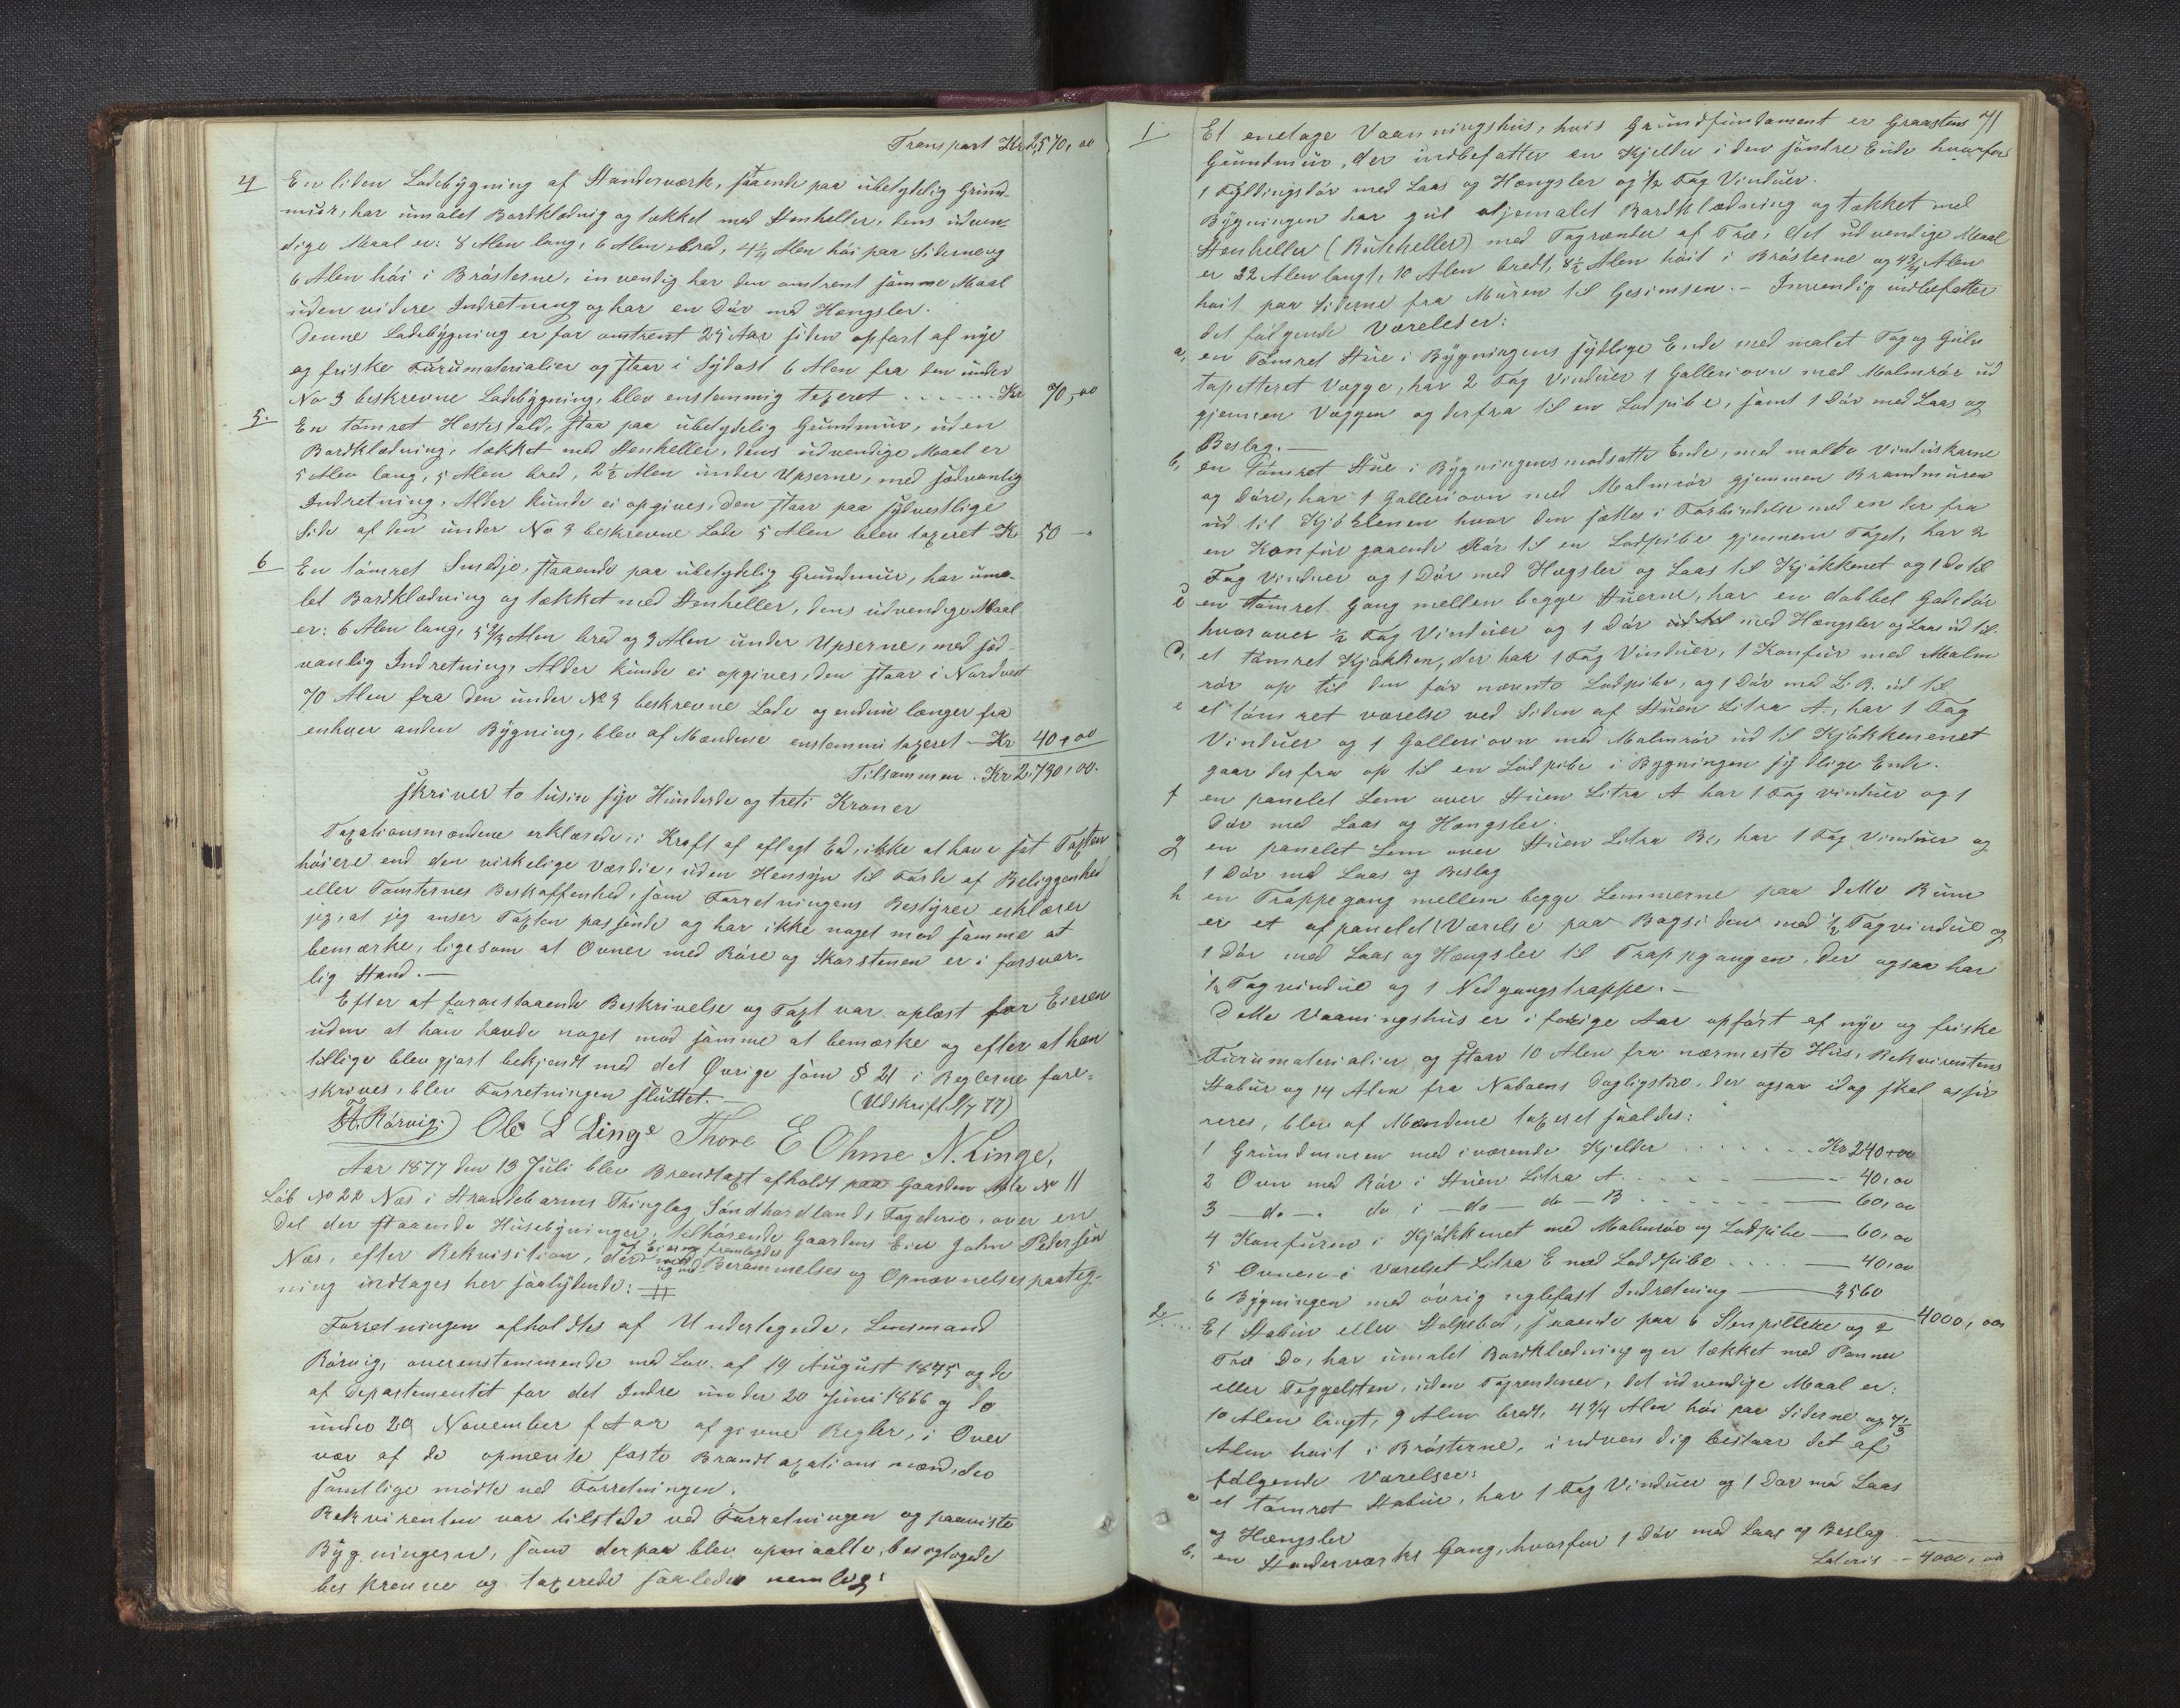 Transport Kr 2,570,00
4 En liden Ladebygning af Standerværk, staaende paa ubetydelig Grund-
muur, har umalet Bordklædnig og tækket med Stenheller, dens udven-
dige Maal er: 8 Alen lang, 6 Alen bred, 4 1/4 Alen høi paa Siderne og
6 Alen høi i Brøsterne, invendig har den omtrent samme Maal
uden videre Indretning og har en Dør med Hængsler.
Denne Ladebygning er for omtrent 25 Aar siden opført af nye
og friske Furumaterialier og staar i Sydost 6 Alen fra den under
No 3 beskrevne Ladebygning, blev enstemmig taxeret . . . . . . Kr 70,00
5. En tømret Hestestald, staa paa ubetydelig Grundmuur, uden
Bordklædning, tækket med Stenheller, dens udvendige Maal er
5 Alen lang, 5 Alen bred, 2 1/2 Alen under Upserne, med sædvanlig
Indretning, Alder kunde ei opgives, den staar paa sydvestlige
Side af den under No 3 beskrevne Lade 5 Alen blev taxeret Kr 50 -"
6 En tømret Smedje, staaende paa ubetydelig Grundmuur, har uma-
let Bordklædning og tækket med Stenheller, dens udvendige Maal
er: 6 Alen lang, 5 2/3 Alen bred og 3 Alen under Upserne, med sæd-
vanlig Indretning, Alder kunde ei opgives, den staar i Nordvest
70 Alen fra den under No 3 beskrevne Lade og endnu længer fra
enhver anden Bygning, blev af Mændene enstemmi taxeret - Kr 40,00
Tilsammen . Kr 2,730,00.
skriver to tusin syv Hundrede og treti Kroner
Taxationsmændene erklærede, i Kraft af aflagt Ed, ikke at have sat Taxten
høiere end den virkelige Værdie, uden Hensyn til Jorde af Beliggenhed
eller Tomternes Beskaffenhed, som Forretningens Bestyrer erklærer
jeg, at jeg anser Taxten passende og har ikke noget mod samme at
bemærke, ligesom at Ovner med Røre og Skorstenen er i forsvar-
lig Stand. —
Efter at foranstaaende Beskrivelse og Taxt var oplæst for Eieren
uden at han havde noget mod samme at bemærke og efter at han
tillige blev gjort bekjendt med det Øvrige som § 21 i Reglerne fore-
skrives, blev Forretningen sluttet. — (Udskrift 9/7 77)
Rørvig. Ole L Linge Thore E Ohme N. Linge,
Aar 1877 den 13 Juli blev Brandtaxt afholdt paa Gaarden Mtr No 11
Løb No 22 Næs i Strandebarms Thinglag Søndhordlands Fogderie, over en
Del der staaende Husebygninger, tilhørende Gaardens Eier John Pedersen
Næs, efter Rekvisition, der af Eieren fremlagdes
og med Berammelses og Opnævnelsespaateg-
ning indtages her saalydende: #
Forretningen afholdtes af Underlegnede, Lensmand
Rørvig, overenstemmende med Lov. af 19 August 1845 og de
af Departementet for det Indre under 20 Juni 1866 og do
under 29 November f Aar afgivne Regler, i Over
vær af de opnævnte faste Brandtaxationsmænd, der
samtlige mødte ved Forretningen.
Rekvirenten var tilstede ved Forretningen og paaviste
Bygningern, som derpaa blev opmaalte, besigtigede
beskrevne og taxerede saaledes nemlig:
71
1 Et enetage Vaanningshus, hvis Grundfundament er Graastens
Grundmuur, der indbefatter en Kjelder i den søndre Ende hvorfor
1 Fyldingsdør med Laas og Hængsler og 1/2 Fag Vinduer.
Bygningen har gul oljemalet Bordklædning og tækket med
Stenheller (Ruteheller) med Tagrender af Træ, det udvendige Maal
er 22 Alen langt, 10 Alen bredt, 8 1/2 Alen høit i Brøsterne og 4 3/4 Alen
høit paa Siderne fra Muren til Gesimsen. - Invendig indbefatter
det følgende Værelser:
a, en Tømret Stue i Bygningens sydlige Ende med malet Tag og Gulv
tapetteret Vægge, har 2 Fag Vinduer 1 Galleriovn med Malmrør ud
gjennem Væggen og derfra til en Ladpibe, samt 1 Dør med Laas og
Beslag. —
b, en Tømret Stue i Bygningens modsatte Ende, med malte Vinduskarne
og Døre, har 1 Galleriovn med Malmrør gjennem Brandmuren
ud til Kjøkkenen hvor den sættes i Forbindelse med en der fra
en Konfur gaaende Rør til en Ladpibe gjennem Taget, har 2
Fag Vinduer og 1 Dør med Hægsler og Laas til Kjøkkenet og 1 Do til
c en tømret Gang mellem begge Stuerne, har en dobbel Gadedør
hvorover 1/2 Fag Vinduer og 1 Dør ud til med Hængsler og Laas ud til
d, et tømret Kjøkken, der har 1 Fag Vinduer, 1 Konfur med Malm
rør op til den før nævnte Ladpibe, og 1 Dør med L. B. ud til
e et tømret værelse ved Siden af Stuen Litra A., har 1 Fag
Vinduer og 1 Galleriovn med Malmrør ud til Kjøkkenenet
gaar derfra op til en Ladpibe i Bygningen sydlige Ende.
f en panelet Lem over Stuen Litra A har 1 Fag vinduer og 1
Dør med Laas og Hængsler.
g en panelet Lem over Stuen Litra B, har 1 Fag Vinduer og
1 Dør med Laas og Beslag
h en Trappegang mellem begge Lemmerne paa dette Rum
er et afpanelet Værelse paa Bagsiden med 1/2 Fag vindue og
1 Dør med Laas og Hængsler til Trappgangen, der ogsaa har
1/2 Fag vindue og 1 Nedgangstrappe. —
Dette Vaaningshus er i forrige Aar opført af nye og friske
Furumaterialier og staar 10 Alen fra nærmeste Hus, Rekvirentens
Stabur og 14 Alen fra Naboens Dagligstue, der ogsaa idag skal assju
reres, blev af Mændene taxeret saaledes:
1 Grundmuren med iværende Kjelder . . . . . . Kr 240,00
2 Ovn med Rør i Stuen Litra A . . . . — 40,00
3 — do — do i — do — do — B . . . . — 60,00
4 Konfuren i Kjøkkenet med Malmrør og Ladpibe — 60,00
5 Ovnen i Værelset Litra E med Ladpibe . . . . — 40,00
6 Bygningen med øvrig naglefast Indretning — 3560
4000,00
2. Et Stabur eller Stolpebod, staaende paa 6 Stenpillere og 2
Træ Do, har umalet Bordklædning og er tækket med Panner
eller Teggelsten, uden Tagrenner, det udvendige Maal er:
10 Alen langt, 9 Alen bredt, 4 3/4 Alen høi paa Siderne og 7 1/3
Alen høit i Brøsterne, indvendig bestaar det af
følgende Værelser:
a et tømret Stabur, har 1 Fag Vinduer og 1 Dør med Laas
og Hængsler
b, en Standerværks Gang, hvorfor 1 Dør med Laas og Beslag
Lateris — 4000,00